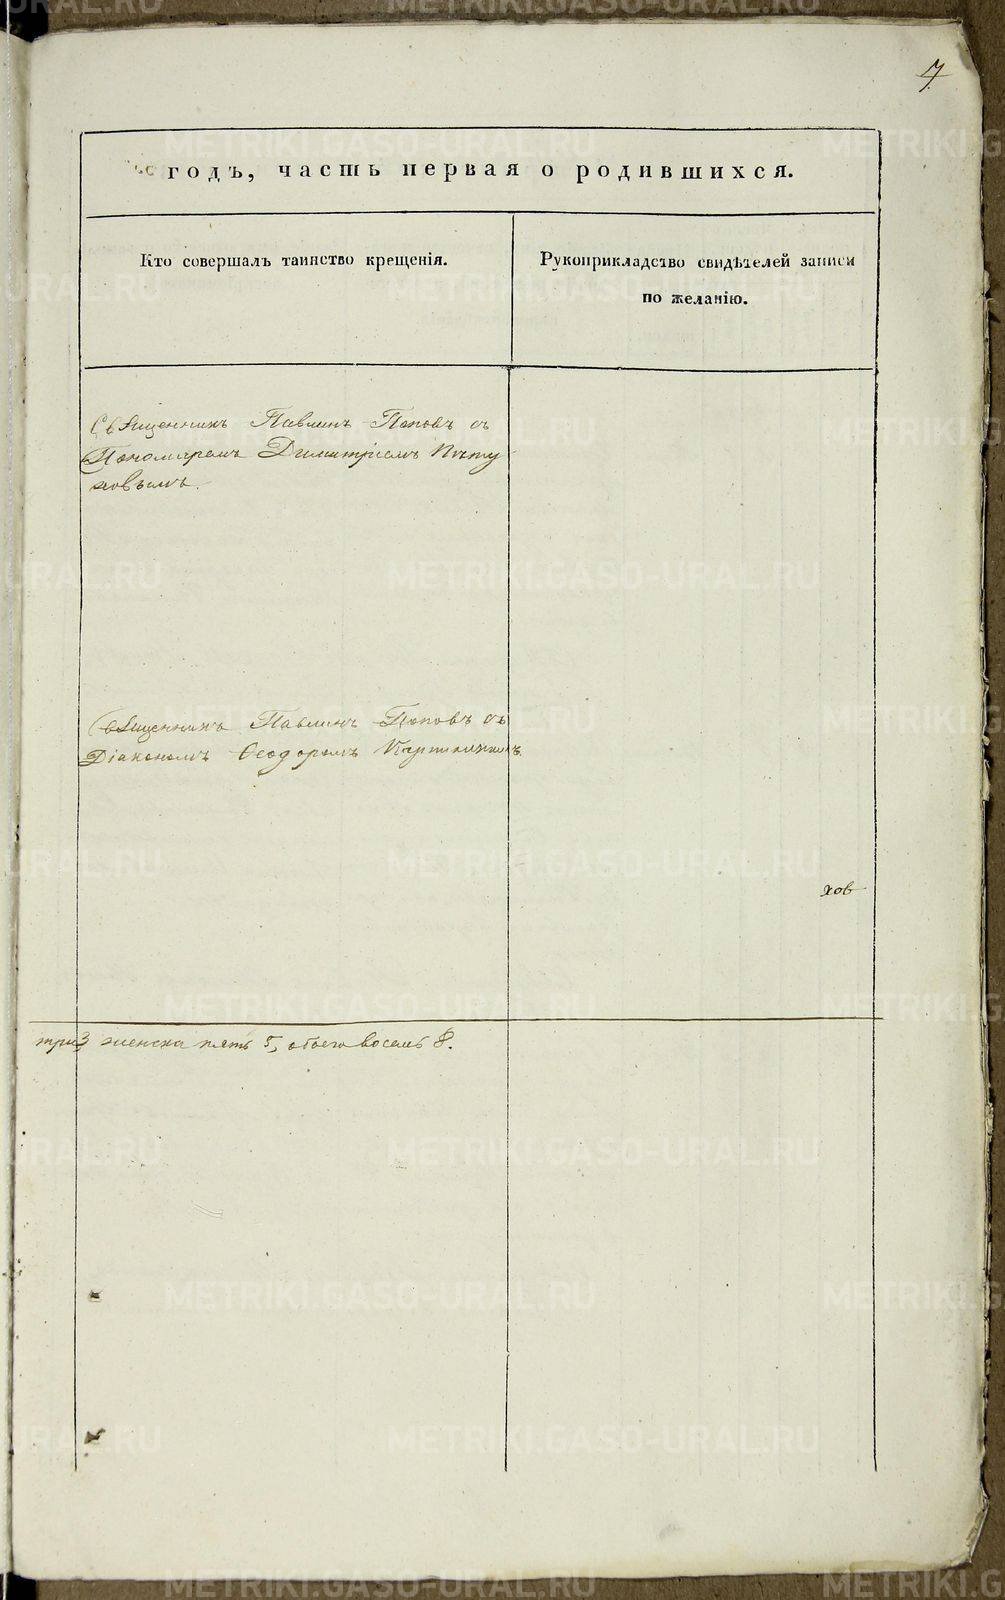 7
годъ, часть первая о родившихся.
Кто совершалъ таинство крещенія.
Рукоприкладство свидѣтелей записи
по желанію.
Священникъ Павлинъ Поповъ съ
Пономаремъ Димитріемъ Пѣту
ховымъ.
Священникъ Павлинъ Поповъ съ
Діакономъ Ѳеодоромъ
хов
три 3, женска пять 5, обоего восемь 8.
METRIKI.GASO-URAL.RU